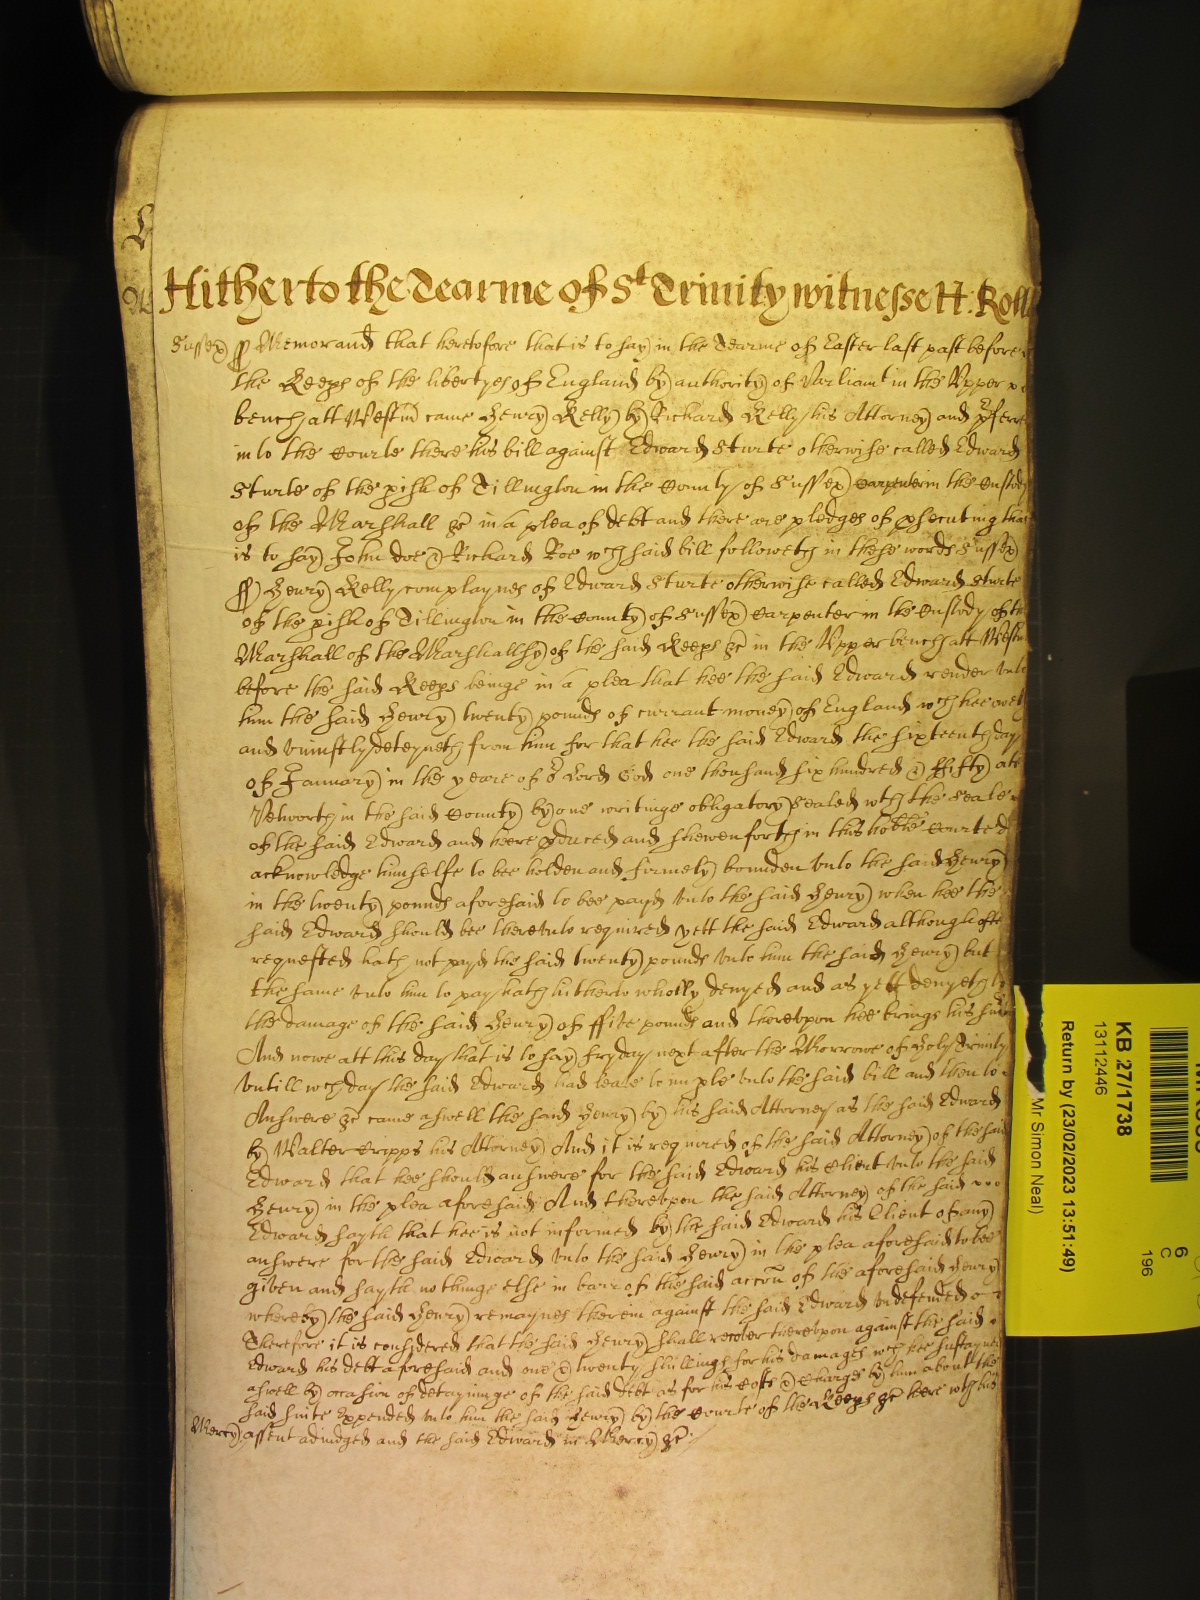 Hitherto the Tearme of St Trinity witnesse H. Roll
Sussex ss Memorand that heretofore that is to say in the Tearme of Easter last past before
the Keeps of the libertyes of England by authority of Parliamt in the Upper
bench att Westm came Henry Kelly by Richard Kelly his Attorney and pferre
into the Courte there his bill against Edward Sturte otherwise called Edward
Sturte of the pish of Tillington in the County of Sussex Carpenter in the Custody
of the Marshall &c in a plea of debt and there are pledges of psecuting that
is to say John Doe & Richard Roe wch said bill followeth in these words Sussex
ss Henry Kelly complaynes of Edward Sturte otherwise called Edward Sturte
of the pish of Tillington in the County of Sussex Carpenter in the Custody of the
Marshall of the Marshallsy of the said Keeps &c in the Upper bench att Westm
before the said Keeps beinge in a plea that hee the said Edward render unto
him the said Henry twenty pounds of currant money of England wch hee oweth
and uniustly deteyneth from him for that hee the said Edward the sixteenth day
of January in the yeare of or Lord God one thousand six hundred & ffifty att
Petworth in the said County by one writinge obligatory Sealed wth the Seale
of the said Edward and heere pduced and shewen forth in this hoble Courte d
acknowledge himselfe to bee holden and firmely bounden unto the said Henry
in the twenty pounds aforesaid to bee payd unto the said Henry when hee the
said Edward should bee thereunto required yett the said Edward although ofte
requested hath not payd the said twenty pounds unto him the said Henry but
the same unto him to pay hath hitherto wholly denyed and as yett denyeth to
the damage of the said Henry of ffive pounds and thereupon hee brings his suite
And nowe att this day that is to say fryday next after the Morrowe of Holy Trinity
Untill wch day the said Edward had leave to imple unto the said bill and then to
Answere &c came aswell the said Henry by his said Attorney as the said Edward
by Walter Cripps his Attorney And it is required of the said Attorney of the said
Edward that hee should answere for the said Edward his Client unto the said
Henry in the plea aforesaid And thereupon the said Attorney of the said
Edward sayth that hee is not informed by the said Edward his Client of any
answere for the said Edward unto the said Henry in the plea aforesaid to bee
given and sayth nothinge else in barr of the said accon of the aforesaid Henry
whereby the said Henry remaynes therein against the said Edward undefended
Therefore it is considered that the said Henry shall recover thereupon against the said
Edward his debt aforesaid and one & twenty shillings for his damages wch hee sustayned
aswell by occasion of detayninge of the said debt as for his Costs & Charge by him about the
said suite Expended unto him the said Henry by the Courte of the Keeps &c here wth his
Mercy assent adiudged and the said Edward in Mercy &c
KB 27/1738
13112446
Return by (23/02/2023 13:51:49)
Mr Simon Neal)
6
C
196